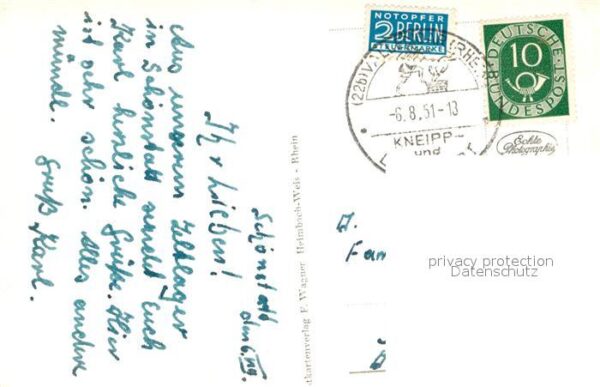 Schönstatt
den 6.VIII.
Ihr Lieben!
Aus unserem Zeltlager
in Schönstatt sendet Euch
Karl herzliche Grüße. Hier
ist sehr schön. Alles andere
mündl. Gruß Karl.
NOTOPFER
2 BERLIN
STEUERMARKE
(22b)
(RHEIN)
-6.8.51-13
KNEIPP-
und
DEUTSCHE
BUNDESPOST
10
Echte
Photographie
Fam
privacy protection
Datenschutz
tkartenverlag F. Wagner Heimbach-Weis - Rhein